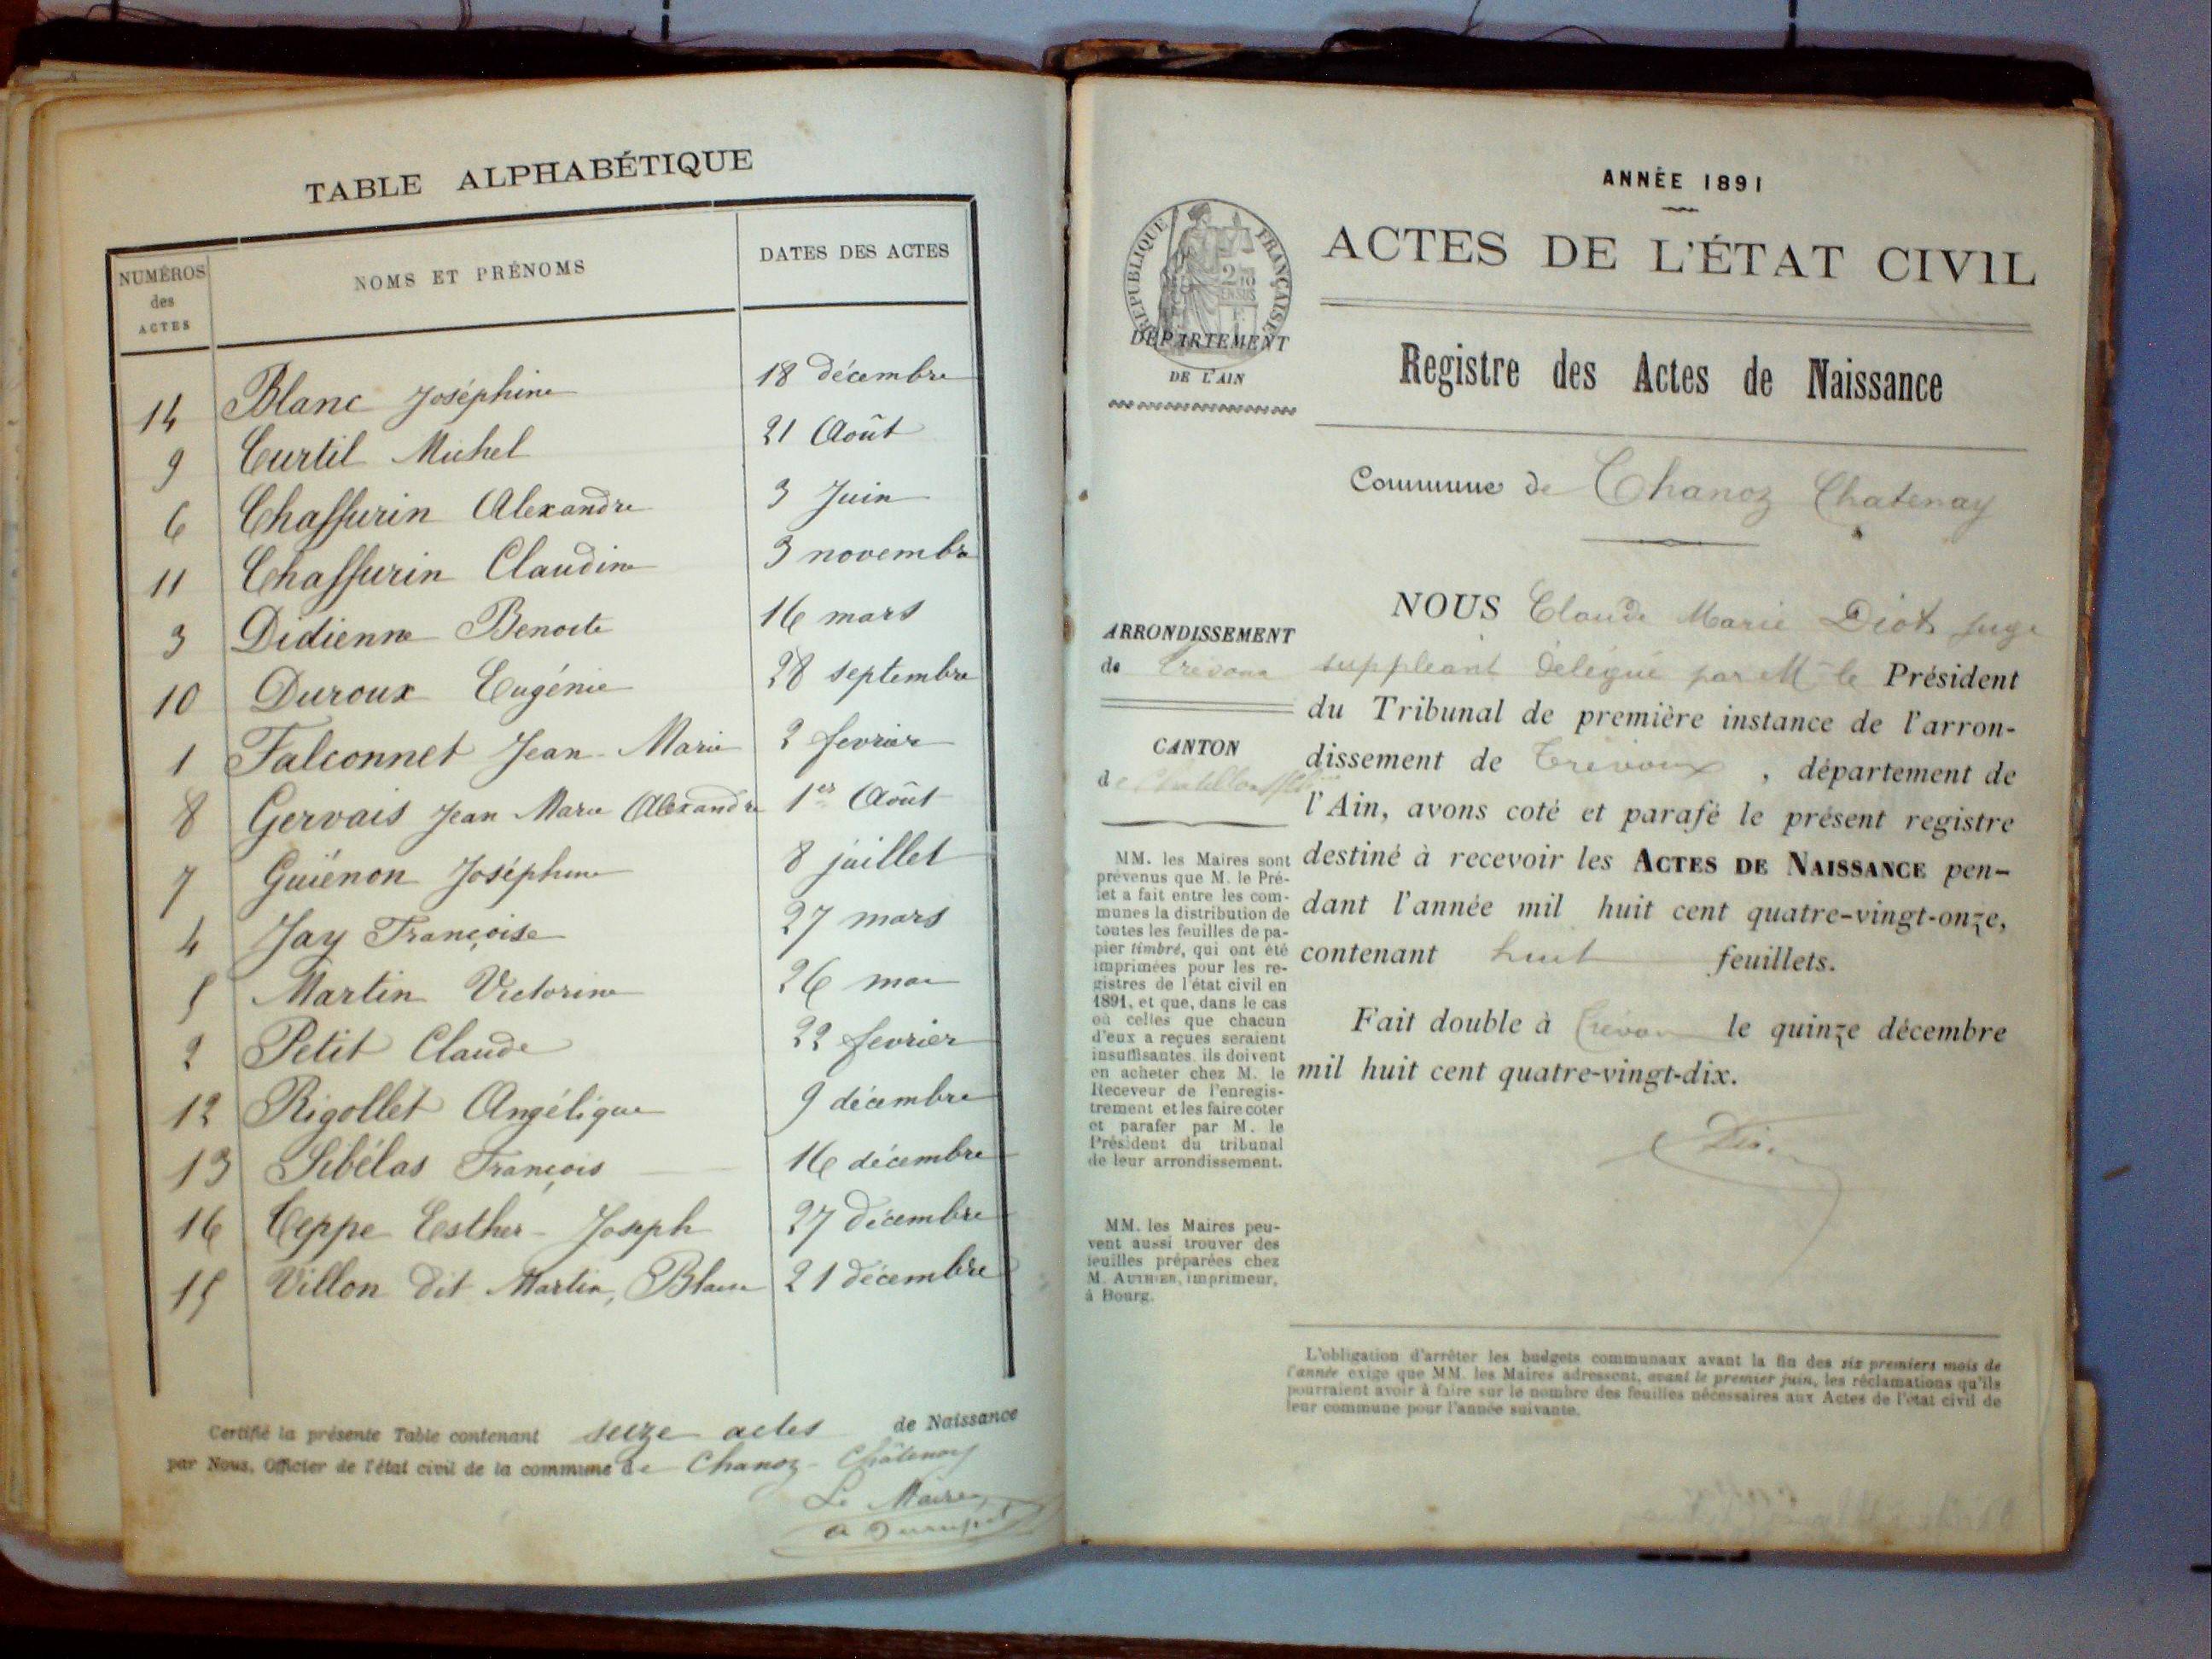 TABLE ALPHABÉTIQUE
NUMÉROS des ACTES NOMS ET PRÉNOMS DATES DES ACTES
14 Blanc Joséphine 18 décembre
9 Curtil Michel 21 Août
6 Chaffurin Alexandre 3 Juin
11 Chaffurin Claudine 3 novembre
3 Didienne Benoite 16 mars
10 Duroux Eugénie 28 septembre
1 Falconnet Jean-Marie 2 fevrier
8 Gervais Jean Marie Alexandre 1er Août
7 Guiénon Joséphine 8 juillet
4 Jay Françoise 27 mars
5 Martin Victorine 26 mai
2 Petit Claude 22 fevrier
12 Rigollet Angélique 9 décembre
13 Sibélas François 16 décembre
16 Ceppe Esther-Joseph 27 décembre
15 Villon dit Martin, Blaise 21 décembre
Certifié la présente Table contenant seize actes de Naissance
par Nous, Officier de l'état civil de la commune de Chanoz-Châtenay
Le Maire,
ANNÉE 1891
ACTES DE L'ÉTAT CIVIL
RÉPUBLIQUE FRANÇAISE
DÉPARTEMENT
DE L'AIN
Registre des Actes de Naissance
Commune de Chanoz Chatenay
ARRONDISSEMENT
de Trévoux
CANTON
de Chatillon
MM. les Maires sont
prévenus que M. le Pré-
fet a fait entre les com-
munes la distribution de
toutes les feuilles de pa-
pier timbré, qui ont été
imprimées pour les re-
gistres de l'état civil en
1891, et que, dans le cas
où celles que chacun
d'eux a reçues seraient
insuffisantes, ils doivent
en acheter chez M. le
Receveur de l'enregis-
trement et les faire coter
et parafer par M. le
Président du tribunal
de leur arrondissement.
MM. les Maires peu-
vent aussi trouver des
feuilles préparées chez
M. AUTHIER, imprimeur,
à Bourg.
NOUS Claude Marie Diot juge
suppléant délégué par Mr le Président
du Tribunal de première instance de l'arron-
dissement de Trévoux, département de
l'Ain, avons coté et parafé le présent registre
destiné à recevoir les ACTES DE NAISSANCE pen-
dant l'année mil huit cent quatre-vingt-onze,
contenant huit feuillets.
Fait double à Trévoux le quinze décembre
mil huit cent quatre-vingt-dix.
Diot
L'obligation d'arrêter les budgets communaux avant la fin des six premiers mois de
l'année exige que MM. les Maires adressent, avant le premier juin, les réclamations qu'ils
pourraient avoir à faire sur le nombre des feuilles nécessaires aux Actes de l'état civil de
leur commune pour l'année suivante.